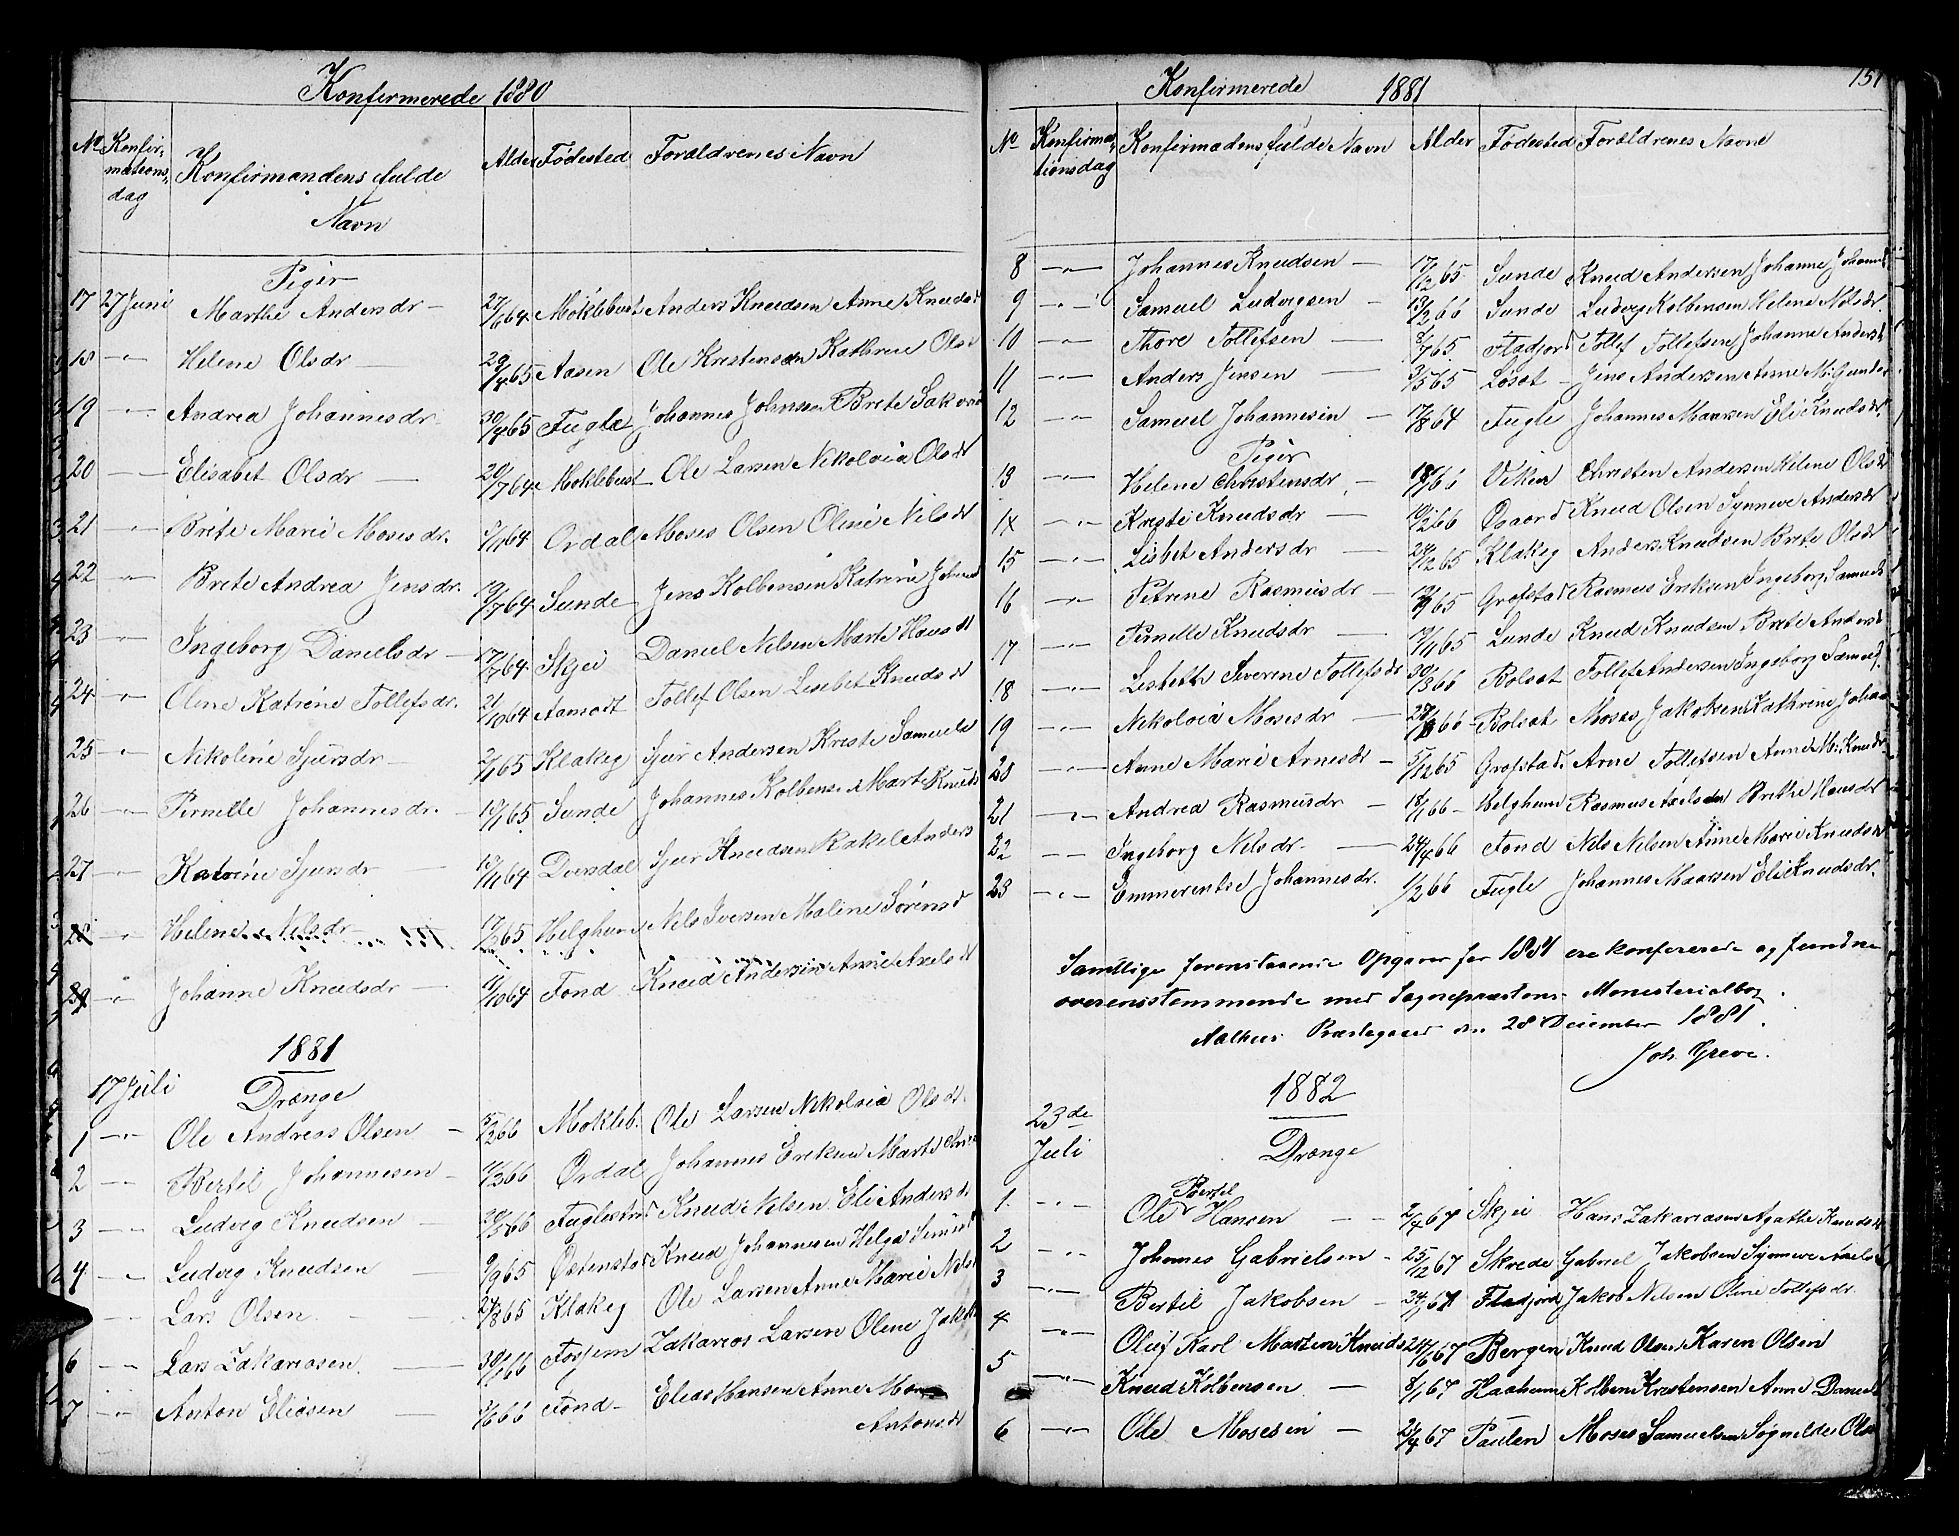 Konfirmerede 1880
No Konfir-mations-dag Konfirmandens fulde Navn Alder Fødested Forældrenes Navn
Piger
17 27 Juni Marthe Andersdr 27/6 64 Møklebust Anders Knudsen Anne Knudsd
18 -"- Helene Olsdr 29/4 65 Aasen Ole Kristensen Kathrine Ols
19 -"- Andrea Johannesdr. 30/4 65 Fugle Johannes Johnsen Brete
20 -"- Elisabet Olsdr 20/7 64 Moklebust Ole Larsen Nikolvia Olsdt
21 -"- Brite Marie Mosesdr. 64 Ordal Moses Olsen Oline Nilsdt
22 -"- Brete Andrea Jensdr. 19/7 64 Sunde Jens Kolbensen Katrine
23 -"- Ingeborg Danielsdr 17/7 64 Skjei Daniel Nilsen Marte Hansdt
24 -"- Oline Katrine Tollefsdr. 21/10 64 Aamost Tollef Olsen Lisebet Knudsdt
25 -"- Nikoline Sjursdr 2/1 65 Klakeg Sjur Andersen Kristi Samuels
26 -"- Pernille Johannesdr. 19/1 65 Sunde Johannes Kolbens Marte Knuds
27 -"- Katrine Sjursdr 10/11 64 Dversdal Sjur Knudsen Rakel Anders
28 -"- Helene Nilsdr 65 Helghem Nils Iversen Maline Sørensd
29 -"- Johanne Knudsdr 11/10 64 Fond Knud Andersen Anne Axelsdt
1881
17 Juli Drænge
1 -"- Ole Andreas Olsen 66 Mokleb. Ole Larsen Nikolvia Olsdt.
2 -"- Bertil Johannesen 66 Ordal Johannes Eriksen Marte
3 -"- Ludvig Knudsen 66 Fuglestrd Knud Nilsen Eli Andersdr
4 -"- Ludvig Knudsen 9/9 65 Østensta Knud Johannesen Helga
-"- Lars Olsen. 27/8 65 Klakeg Ole Larsen Anne Marie Nils
6 -"- Lars Zakariasen. 30/1 66 Fossem Zakarias Larsen Oline
7 -"- Anton Eliasen 66 Fond Elias Hansen Anne
Antonsdt
Konfirmerede 1881 151
No Konfirma-tionsdag Konfirmadens fulde Navn Alder Fødested Forældrenes Navne
8 -"- Johannes Knudsen 17/12 65 Sunde Knud Andersen Johanne
9 -"- Samuel Ludvigsen 13/2 66 Sunde Ludvig Kolbensen Helene Nilsdr.
10 -"- Thore Tollefsen 8/7 65 Fladjord Tollef Tollefsen Johanne Anders
11 -"- Anders Jensen 3/5 65 Løset Jens Andersen Anne M. Gunder
12 -"- Samuel Johannesen 17/8 64 Fugle Johannes Maarsen Eli Knudsdr.
Piger
13 Helene Christensdr. 66 Viken Christen Andersen Helene Olsdt
14 -"- Kristi Knudsdr 10/2 66 Øgaard Knud Olsen Synneve Andersdt
15 -"- Lisbet Andersdr 24/12 65 Klakeg Anders Knudsen Brete Olsdt
16 -"- Petrine Rasmusdr 65 Grofstad Rasmus Eriksen Ingeborg Samuels
17 -"- Pernille Knudsdr 19/11 65 Sunde Knud Knudsen Brete Anders
18 -"- Lisbeth Severine Tollefsdt 30/3 66 Bolset Tollef Andersen Ingeborg Samuel
19 -"- Nikolvia Mosesdr 66 Bolset Moses Jakobsen Kathrine Johan
20 -"- Anne Marie Arnesdt 5/12 65 Grofstad. Arne Tollefsen Anne M. Knudsdr
21 -"- Andrea Rasmusdr 18/1 66 Helghem Rasmus Axelsen Brithe Hansdr
22 -"- Ingeborg Nilsdr. 24/4 66 Fond Nils Nilsen Anne Marie Knudsdt
23 -"- Emmerentse Johannesdr. 1/2 66 Fugle Johannes Maarsen Eli Knudsdr.
Samtlige forenstaaende Opgaver for 1881 ere konfererede og fundne
overensstemmende med Sognepræstens Ministerialbog.
Aalhus Præstegaard den 28 December 1881.
Joh. Greve.
1882
23de Juli Drænge
Bertil
1. -"- Ole Hansen 2/4 67 Skjei Hans Zakariasen Agathe Knudsdt
2 -"- Johannes Gabrielsen 25/12 67 Skrede Gabriel Jakobsen Synneve
3 -"- Bertil Jakobsen 67 Fladjord Jakob Nilsen Oline Tollefsdr.
4 -"- Oluf Karl Martin Knuds 24/6 67 Bergen Knud Olsen Karen Olsen
5 -"- Knud Kolbensen 8/1 67 Haaheim Kolben Kristensen Anne Daniels
6 -"- Ole Mosesen 21/4 67 Paulen Moses Samuelsen Søgnilde Ols